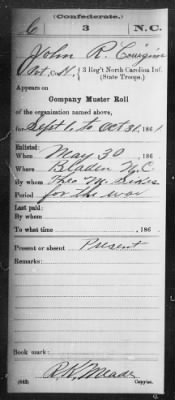 (Confederate.)
C 3 N.C.
John R.
Pvt, Co. H, 3 Reg't North Carolina Inf.
(State Troops.)
Appears on
Company Muster Roll
of the organization named above,
for Sept 1, to Oct 31, 1861
Enlisted:
When May 30, 186
Where Bladen N.C.
By whom Theo M.
Period for the war
Last paid:
By whom
To what time , 186 .
Present or absent Present
Remarks:
Book mark:
R.K. Meade
(642) Copyist.